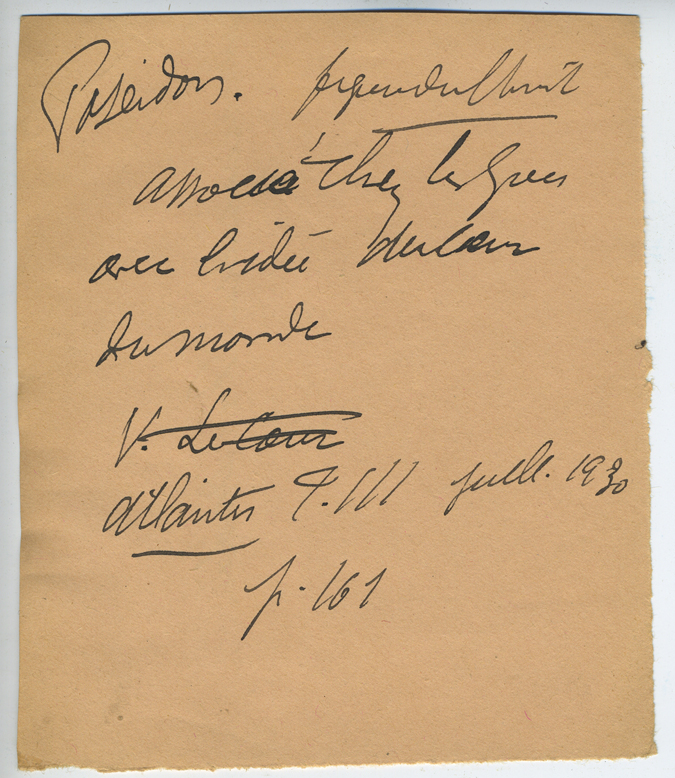 Poseidon.
associé chez les Grecs
avec l'idée du cœur
du monde
V. Le Cour
Atlantis T. III juill. 1930
p. 161